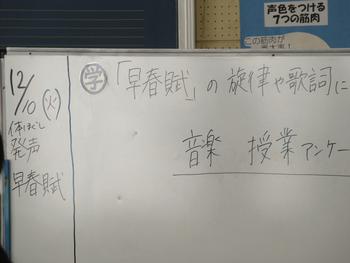 声色をつける
7つの筋肉
この筋肉が
12/10(火)
体ほぐし
発声
早春賦
学「早春賦」の旋律や歌詞に
音楽 授業アンケー